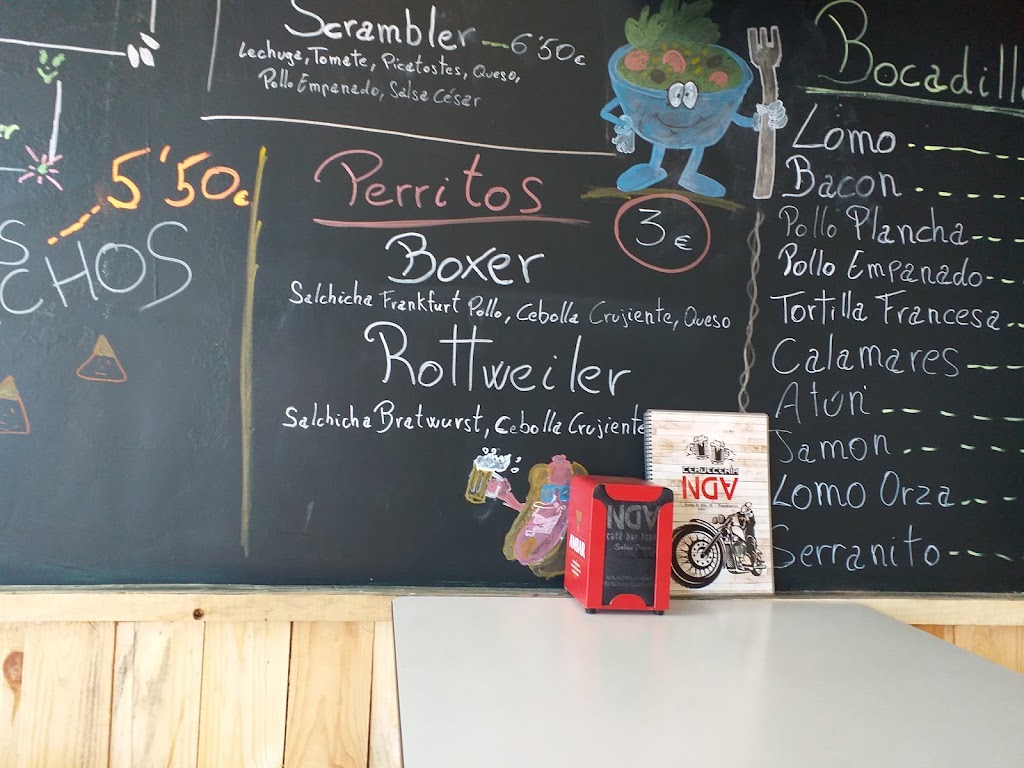 Scrambler 6'50€
Lechuga, Tomate, Picatostes, Queso,
Pollo Empanado, Salsa César
5'50€
CHOS
Perritos
3€
Boxer
Salchicha Frankfurt Pollo, Cebolla Crujiente, Queso
Rottweiler
Salchicha Bratwurst, Cebolla Crujiente
Bocadill
Lomo
Bacon
Pollo Plancha
Pollo Empanado
Tortilla Francesa
Calamares
Atún
Jamon
Lomo Orza
Serranito
CERVECERÍA
NDV
NDV
café bar
AMBAR